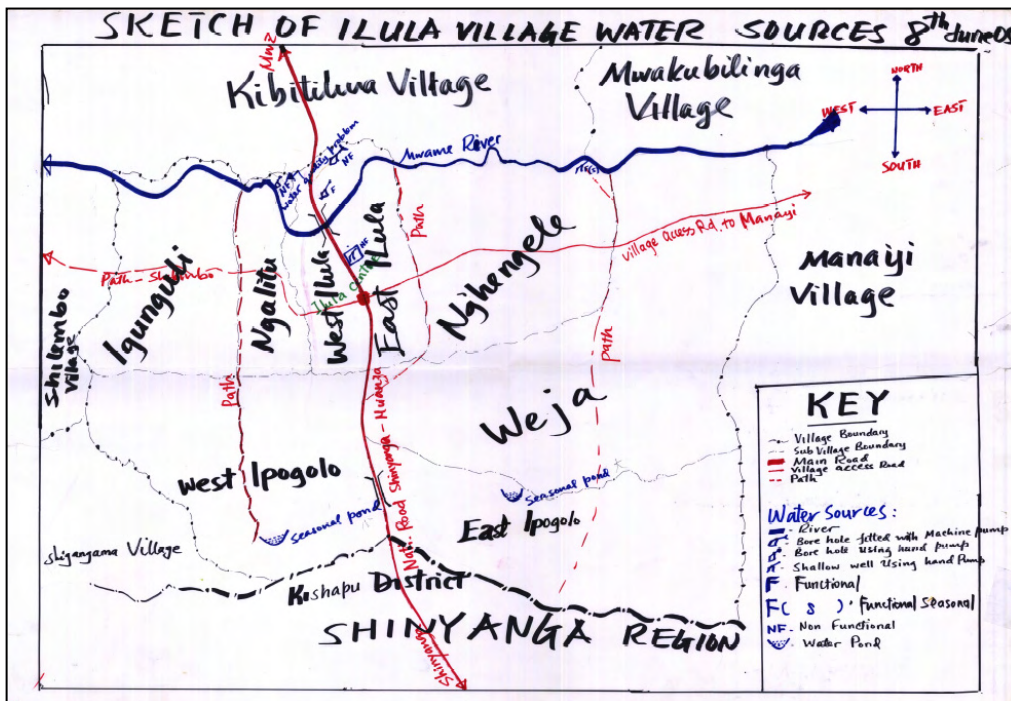 SKETCH OF ILULA VILLAGE WATER SOURCES 8th June 09
Mwz
Kibitilwa Village
Mwakubilinga
Village
NORTH
WEST
EAST
SOUTH
NF
water problem
NF
F
Mwame River
Path
NF
Village access Rd. to Manayi
Path - Shilembo
Ilula centre
Shilembo
Village
Igunguli
Ngalitu
West Ilula
East Ilula
Nghengele
Manaiyi
Village
Path
Path
Weja
Nat. Road Shinyanga - Mwanza
West Ipogolo
seasonal pond
seasonal pond
East Ipogolo
Shigangama Village
Kishapu District
SHINYANGA REGION
Shinyanga
KEY
Village Boundary
Sub Village Boundary
Main Road
Village access Road
Path
Water Sources:
River
Bore hole fitted with Machine pump
Bore hole Using hand pump
Shallow well Using hand Pump
F Functional
F( S ) Functional Seasonal
NF - Non Functional
Water Pond